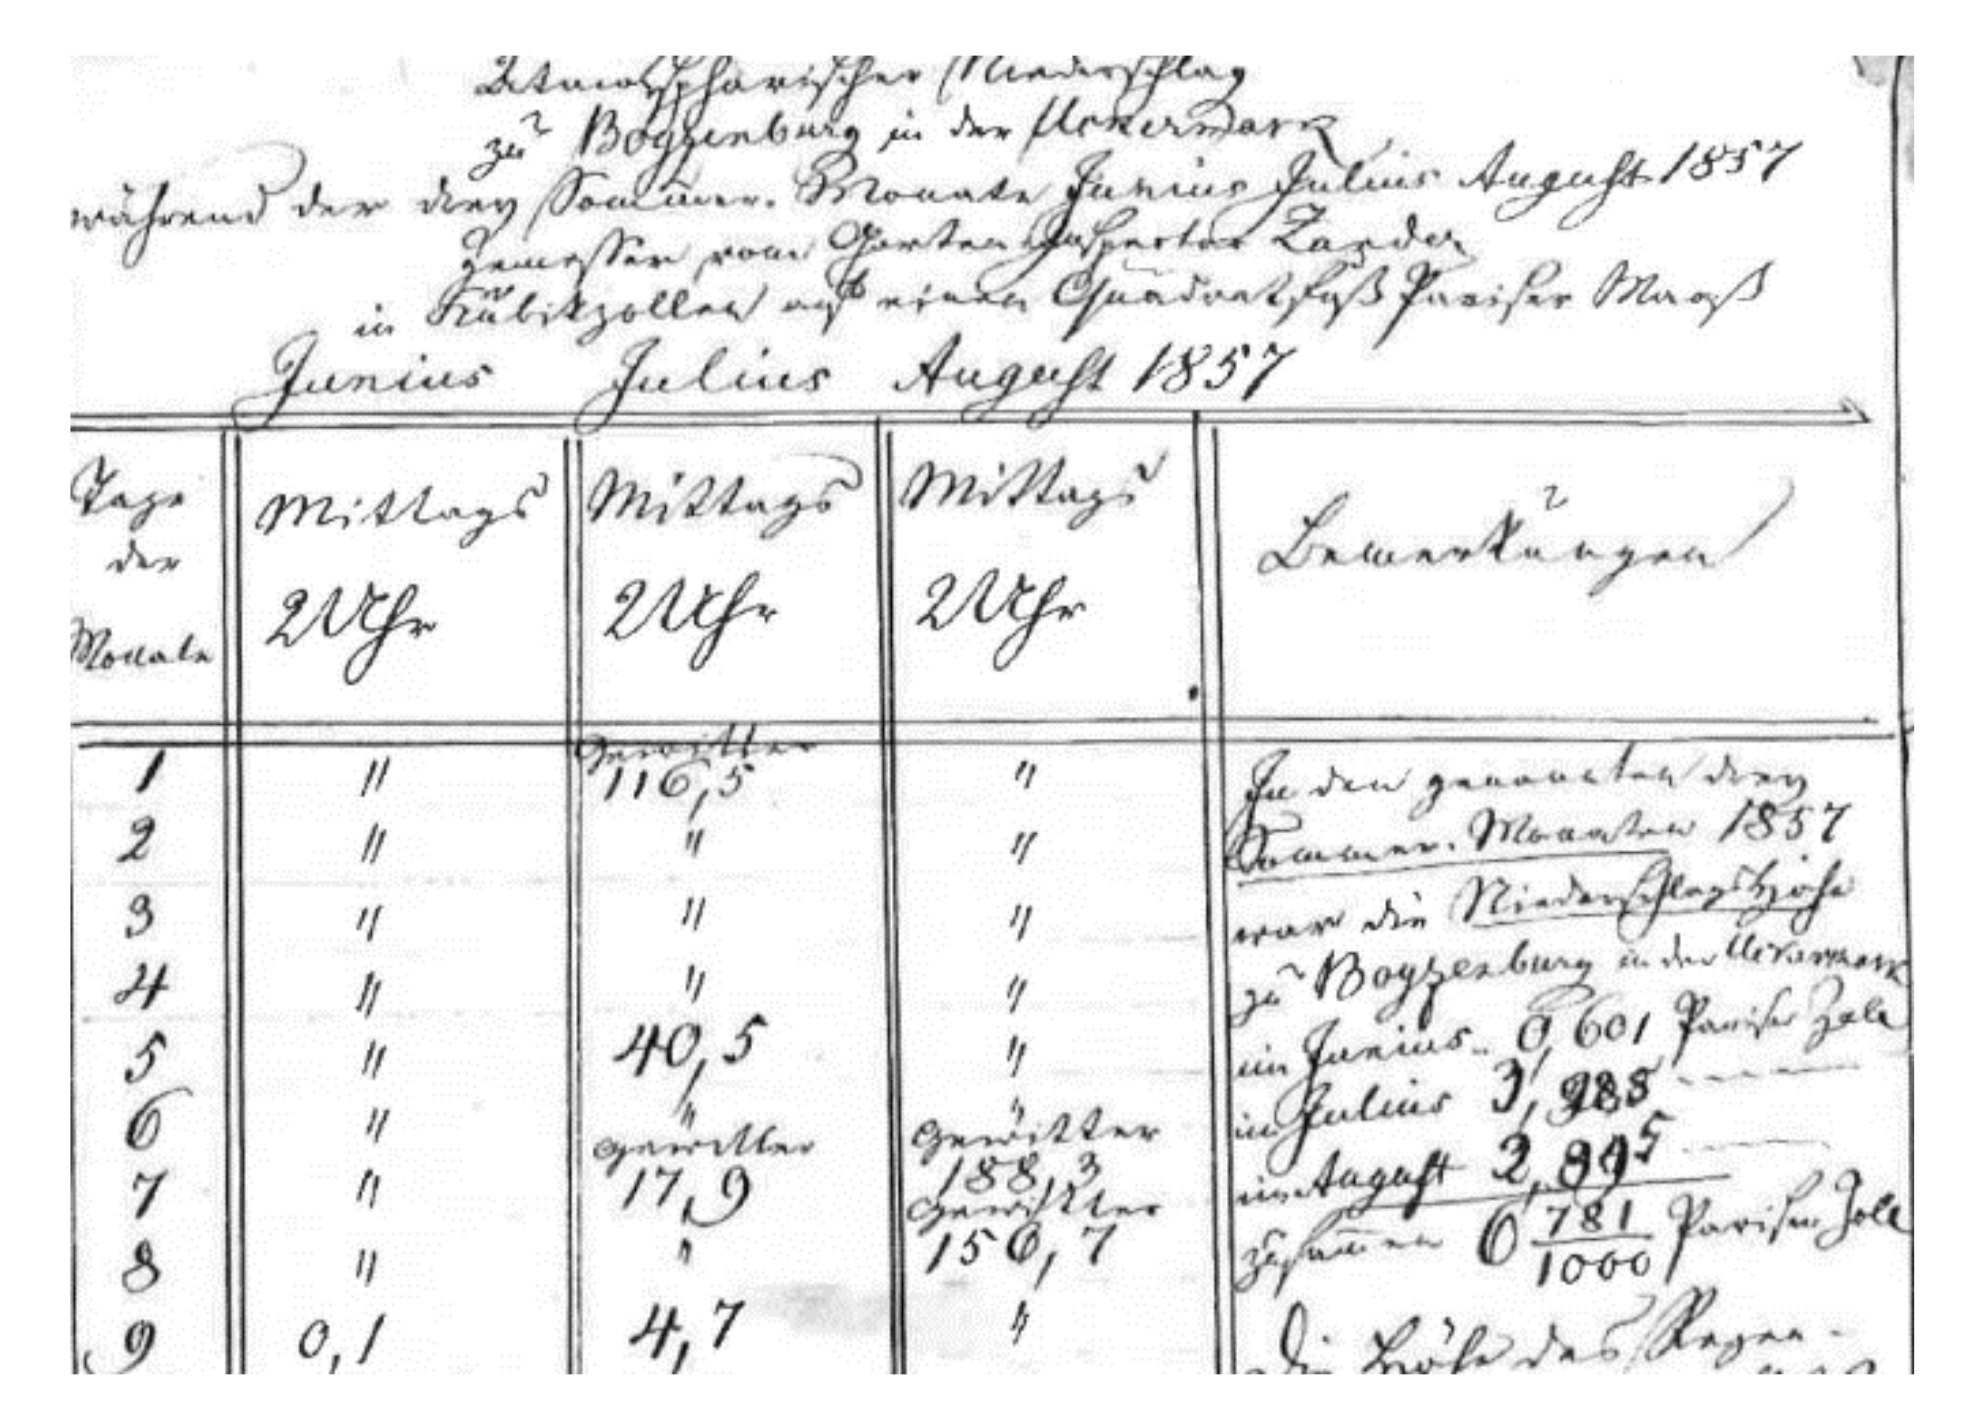 Atmosphärischer Niederschlag
zu Boytzenburg in der Uckermark
während der drey Sommer-Monate Junius Julius August 1857
Gemessen vom Garten Inspector Zander
in Kubikzollen auf einen Quadratfuß Pariser Maaß
Junius Julius August 1857
Tage Mittags Mittags Mittags Bemerkungen
der
Monate 2 Uhr 2 Uhr 2 Uhr
Gewitter
1 " 116,5 " In den genannten drey
2 " " " Sommer-Monaten 1857
3 " " " war die Niederschlagshöhe
4 " " " zu Boytzenburg in der Uckermark
5 " 40,5 " im Junius 0,601 Pariser Zoll
6 " " " im Julius 3,
Gewitter Gewitter
7 " 17,9 188,3 im August 2,
Gewitter
8 " " 156,7 zusammen 6 781/1000 Pariser Zoll
9 0,1 4,7 " Die Höhe des Regen-